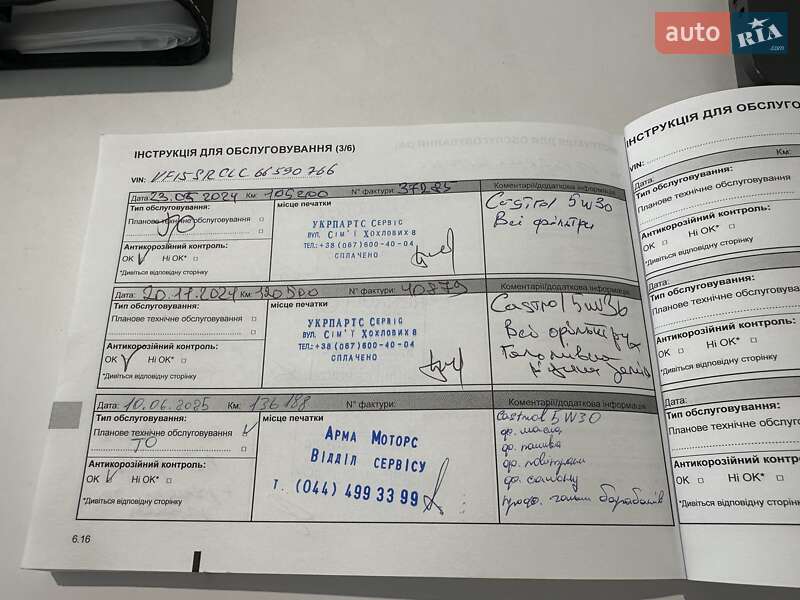 auto RIA.com
ІНСТРУКЦІЯ ДЛЯ ОБСЛУГОВУВАННЯ (3/6)
VIN: VF15SRCLC66590766
Дата: 23.05.2024 Км: 106200 N° фактури: 37285
Коментарі/додаткова інформація
Тип обслуговування:
Планове технічне обслуговування
ТО
Антикорозійний контроль:
OK Ні OK*
*Дивіться відповідну сторінку
місце печатки
УКРПАРТС СЕРВІС
ВУЛ. СІМ'Ї ХОХЛОВИХ 8
ТЕЛ.:+38(067)600-40-04
СПЛАЧЕНО
Castrol 5W30
Всі фільтри
Дата: 20.11.2024 Км: 120500 N° фактури: 40879
Коментарі/додаткова інформація
Тип обслуговування:
Планове технічне обслуговування
Антикорозійний контроль:
OK Ні OK*
*Дивіться відповідну сторінку
місце печатки
УКРПАРТС СЕРВІС
ВУЛ. СІМ'Ї ХОХЛОВИХ 8
ТЕЛ.:+38(067)600-40-04
СПЛАЧЕНО
Castrol 5W30
Всі фільтри
Дата: 10.06.2025 Км: 136188 N° фактури:
Коментарі/додаткова інформація
Тип обслуговування:
Планове технічне обслуговування
ТО
Антикорозійний контроль:
OK Ні OK*
*Дивіться відповідну сторінку
місце печатки
АРМА МОТОРС
ВІДДІЛ СЕРВІСУ
Т. (044) 499 33 99
Castrol 5W30
ф. масла
ф. палива
ф. повітряний
ф. салону
барабанів
6.16
ІНСТРУКЦІЯ ДЛЯ ОБСЛУГО
VIN:
Дата: Км:
Тип обслуговування:
Планове технічне обслуговування
Антикорозійний контроль:
OK Ні OK*
*Дивіться відповідну сторінку
Дата:
Тип обслуговування:
Планове технічне обслуговува
Антикорозійний контроль:
OK Ні OK*
*Дивіться відповідну сторінку
Дата:
Тип обслуговування:
Планове технічне обслуговув
Антикорозійний контроль
OK Ні OK*
*Дивіться відповідну сторінку